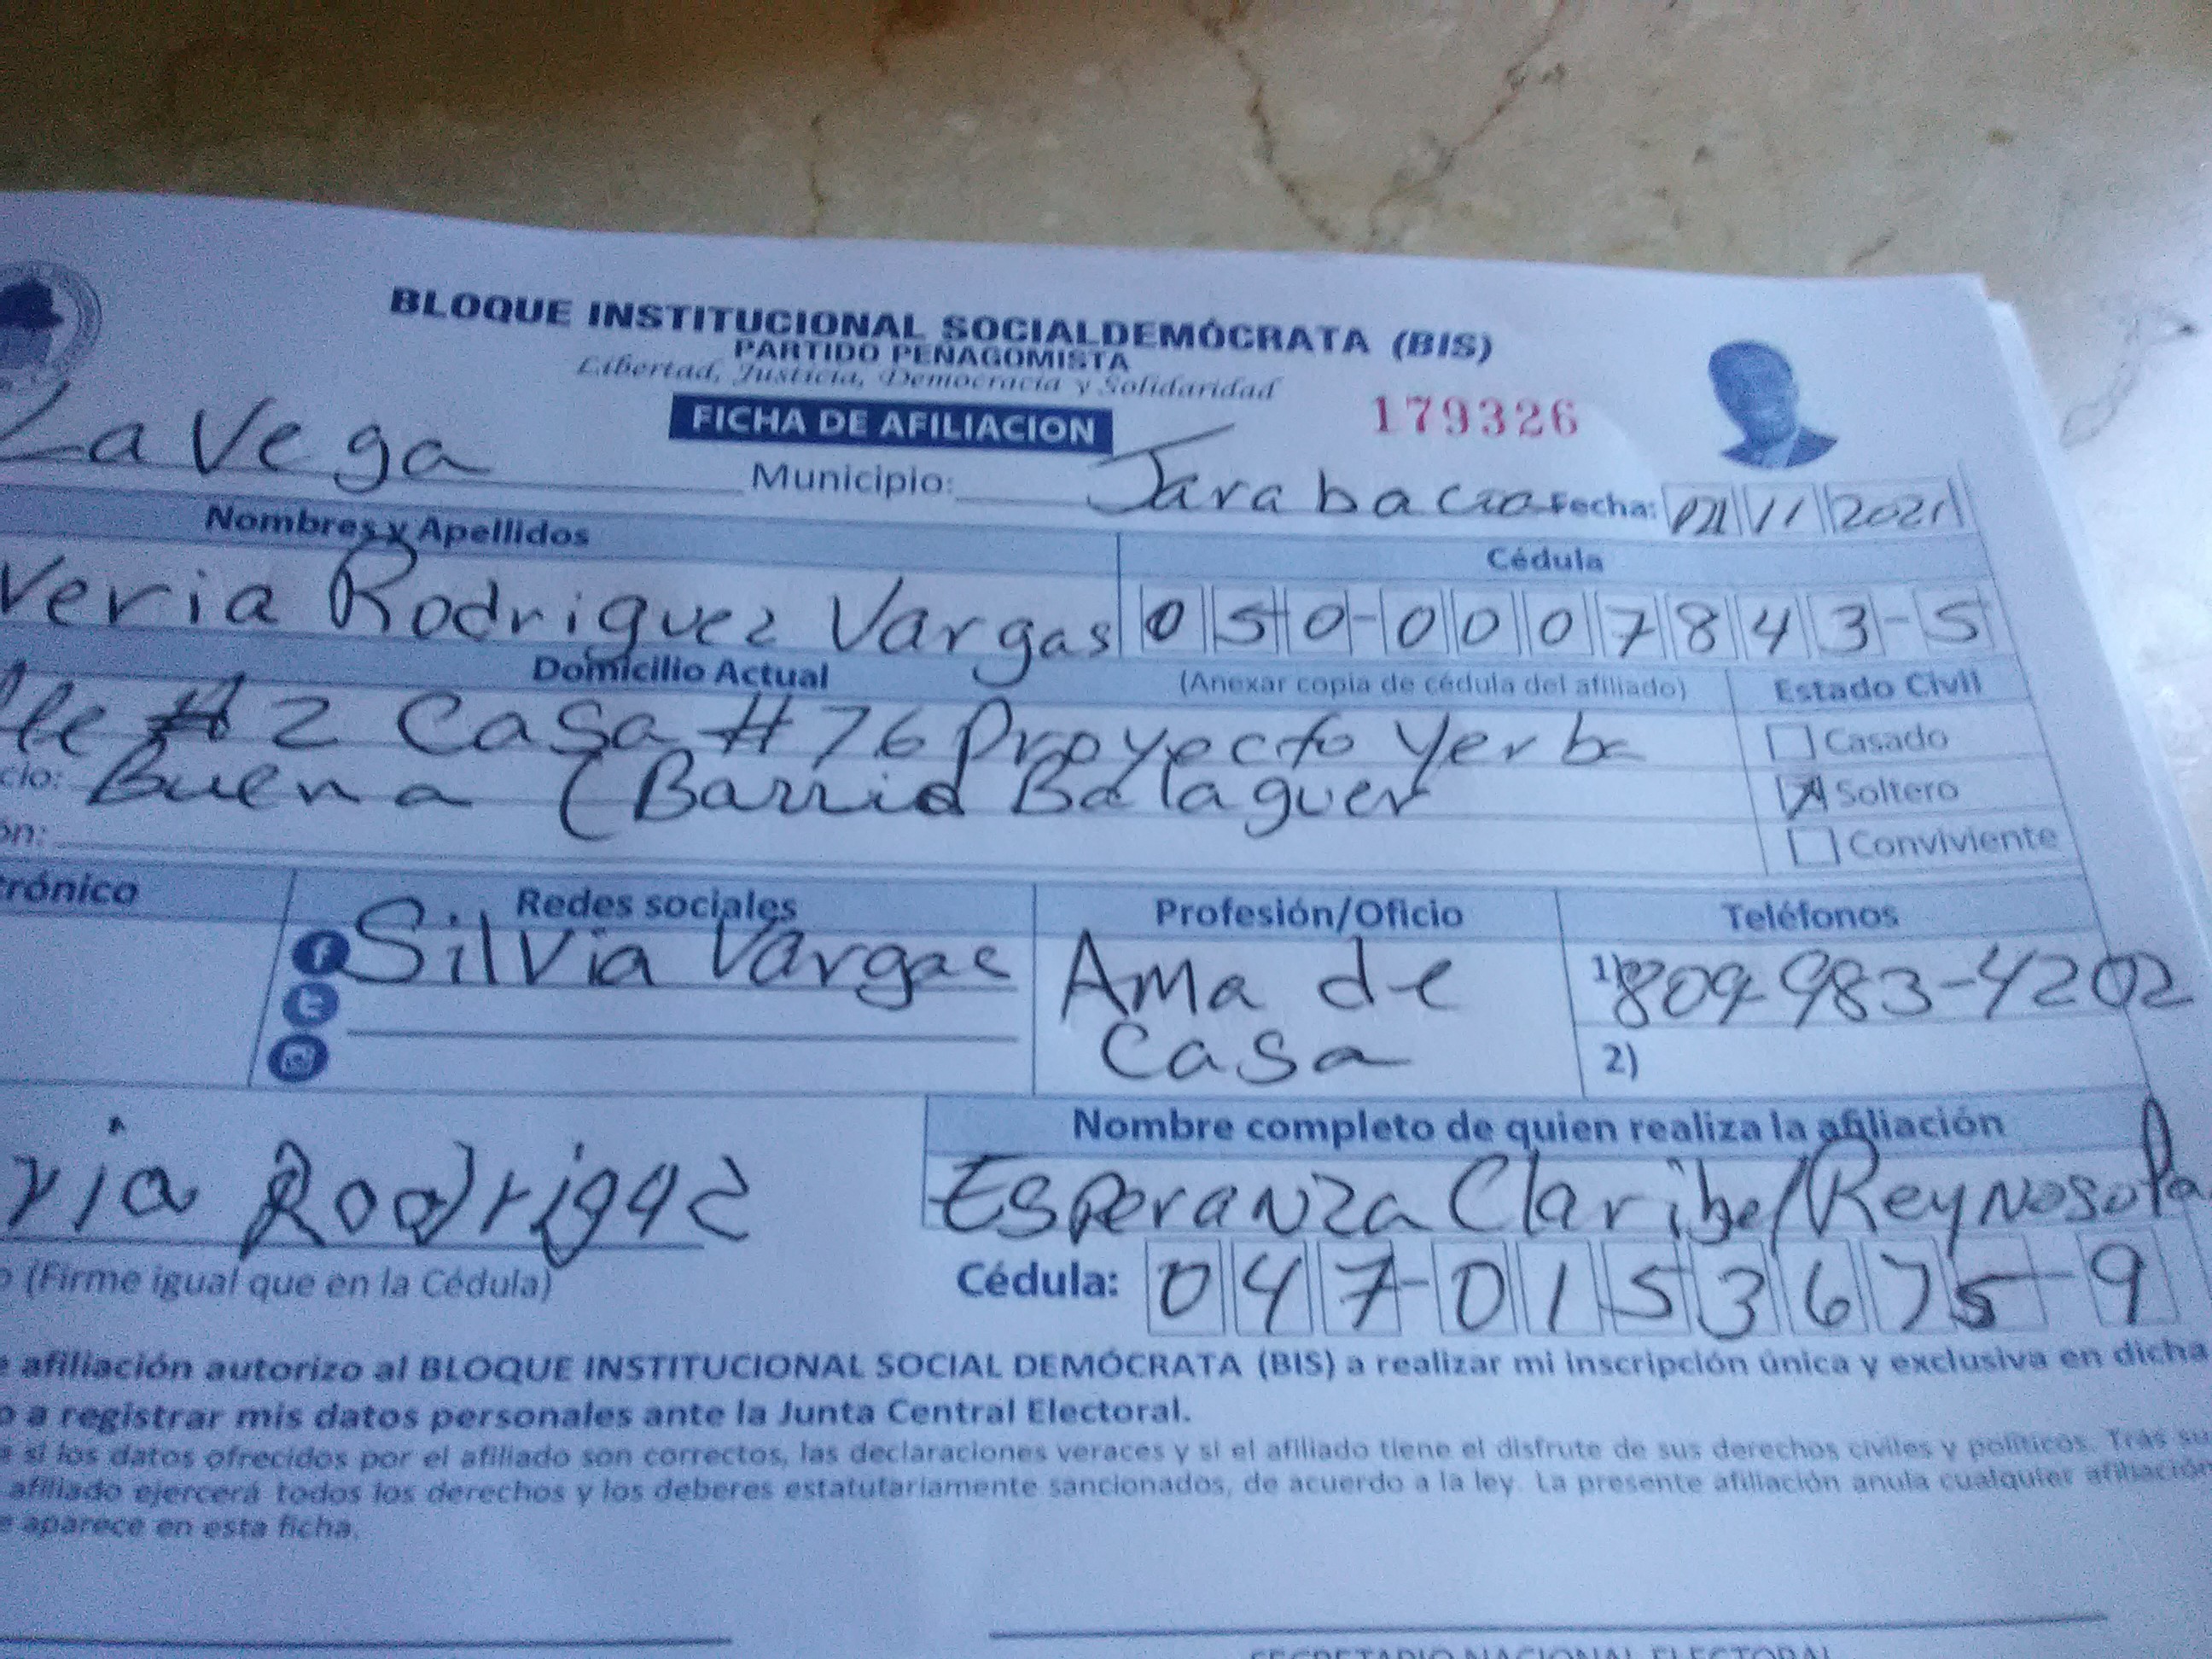 BLOQUE INSTITUCIONAL SOCIALDEMÓCRATA (BIS)
PARTIDO PEÑAGOMISTA
Libertad, Justicia, Democracia y Solidaridad
FICHA DE AFILIACION
179326
La Vega Municipio: Jarabacoa Fecha: 11 2021
Nombres y Apellidos Cédula
veria Rodriguez Vargas 050-0007843-5
Domicilio Actual (Anexar copia de cédula del afiliado) Estado Civil
lle # 2 Casa # 76 Proyecto Yerba Casado
cio: Buena (Barrio Balaguer Soltero
ón: Conviviente
trónico Redes sociales Profesión/Oficio Teléfonos
Silvia Vargas Ama de 1) 809-983-4202
Casa 2)
Nombre completo de quien realiza la afiliación
ria Rodrigqz Esperanza Claribel Reynoso Pa
o (Firme igual que en la Cédula) Cédula: 047-0153675-9
e afiliación autorizo al BLOQUE INSTITUCIONAL SOCIAL DEMÓCRATA (BIS) a realizar mi inscripción única y exclusiva en dicha
o a registrar mis datos personales ante la Junta Central Electoral.
a si los datos ofrecidos por el afiliado son correctos, las declaraciones veraces y si el afiliado tiene el disfrute de sus derechos civiles y políticos. Tras su
afiliado ejercerá todos los derechos y los deberes estatutariamente sancionados, de acuerdo a la ley. La presente afiliación anula cualquier afiliación
e aparece en esta ficha.
SECRETARIO NACIONAL ELECTORAL